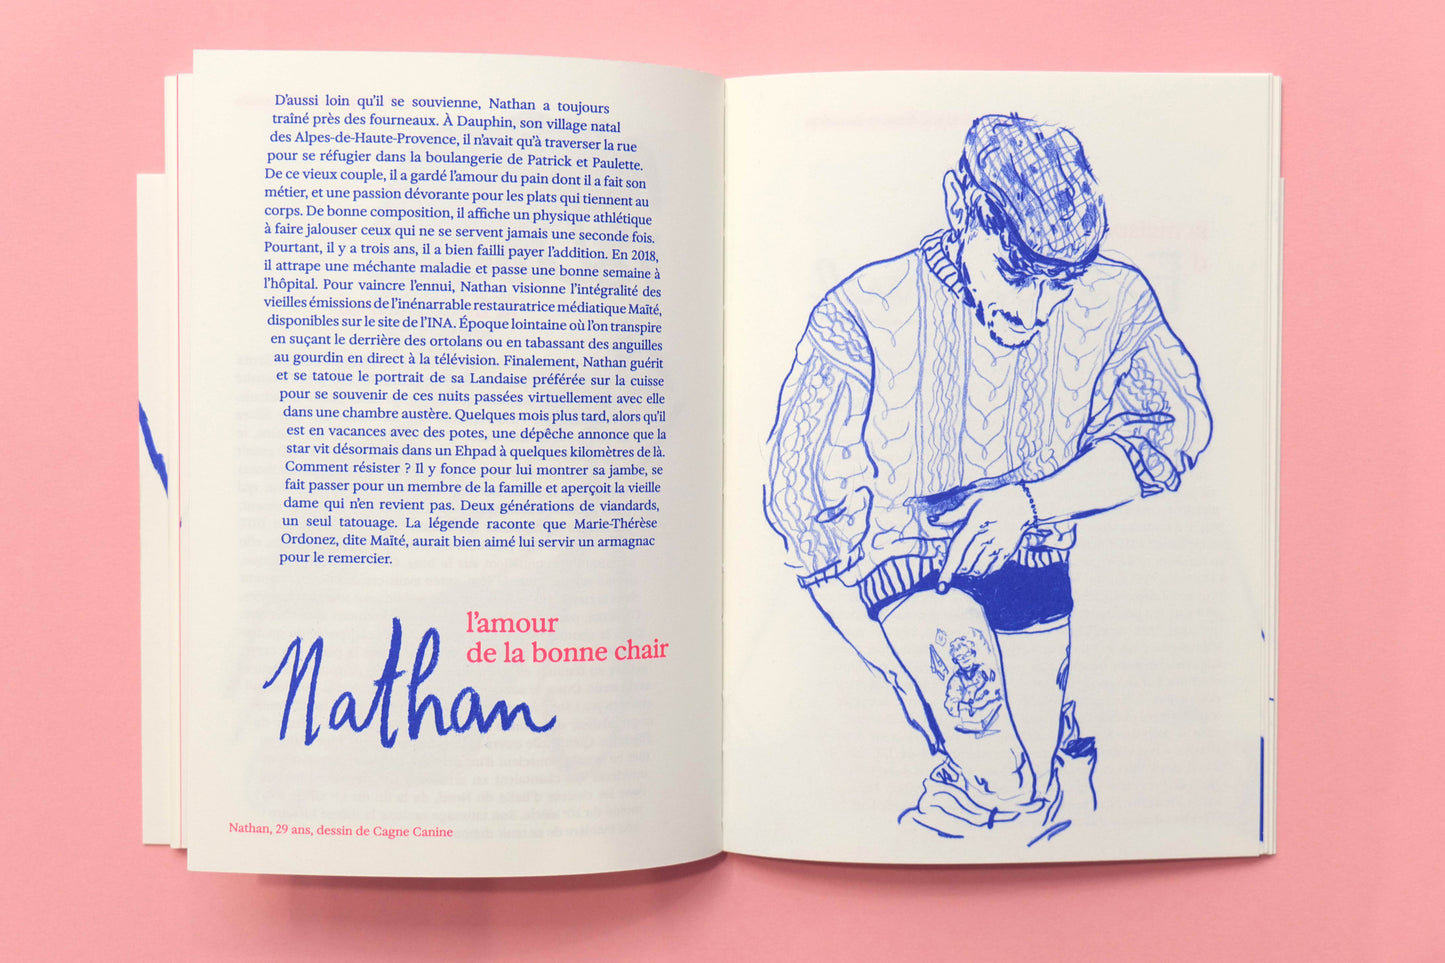 D'aussi loin qu'il se souvienne, Nathan a toujours
traîné près des fourneaux. À Dauphin, son village natal
des Alpes-de-Haute-Provence, il n'avait qu'à traverser la rue
pour se réfugier dans la boulangerie de Patrick et Paulette.
De ce vieux couple, il a gardé l'amour du pain dont il a fait son
métier, et une passion dévorante pour les plats qui tiennent au
corps. De bonne composition, il affiche un physique athlétique
à faire jalouser ceux qui ne se servent jamais une seconde fois.
Pourtant, il y a trois ans, il a bien failli payer l'addition. En 2018,
il attrape une méchante maladie et passe une bonne semaine à
l'hôpital. Pour vaincre l'ennui, Nathan visionne l'intégralité des
vieilles émissions de l'inénarrable restauratrice médiatique Maïté,
disponibles sur le site de l'INA. Époque lointaine où l'on transpire
en suçant le derrière des ortolans ou en tabassant des anguilles
au gourdin en direct à la télévision. Finalement, Nathan guérit
et se tatoue le portrait de sa Landaise préférée sur la cuisse
pour se souvenir de ces nuits passées virtuellement avec elle
dans une chambre austère. Quelques mois plus tard, alors qu'il
est en vacances avec des potes, une dépêche annonce que la
star vit désormais dans un Ehpad à quelques kilomètres de là.
Comment résister ? Il y fonce pour lui montrer sa jambe, se
fait passer pour un membre de la famille et aperçoit la vieille
dame qui n'en revient pas. Deux générations de viandards,
un seul tatouage. La légende raconte que Marie-Thérèse
Ordonez, dite Maïté, aurait bien aimé lui servir un armagnac
pour le remercier.
Nathan
l'amour
de la bonne chair
Nathan, 29 ans, dessin de Cagne Canine